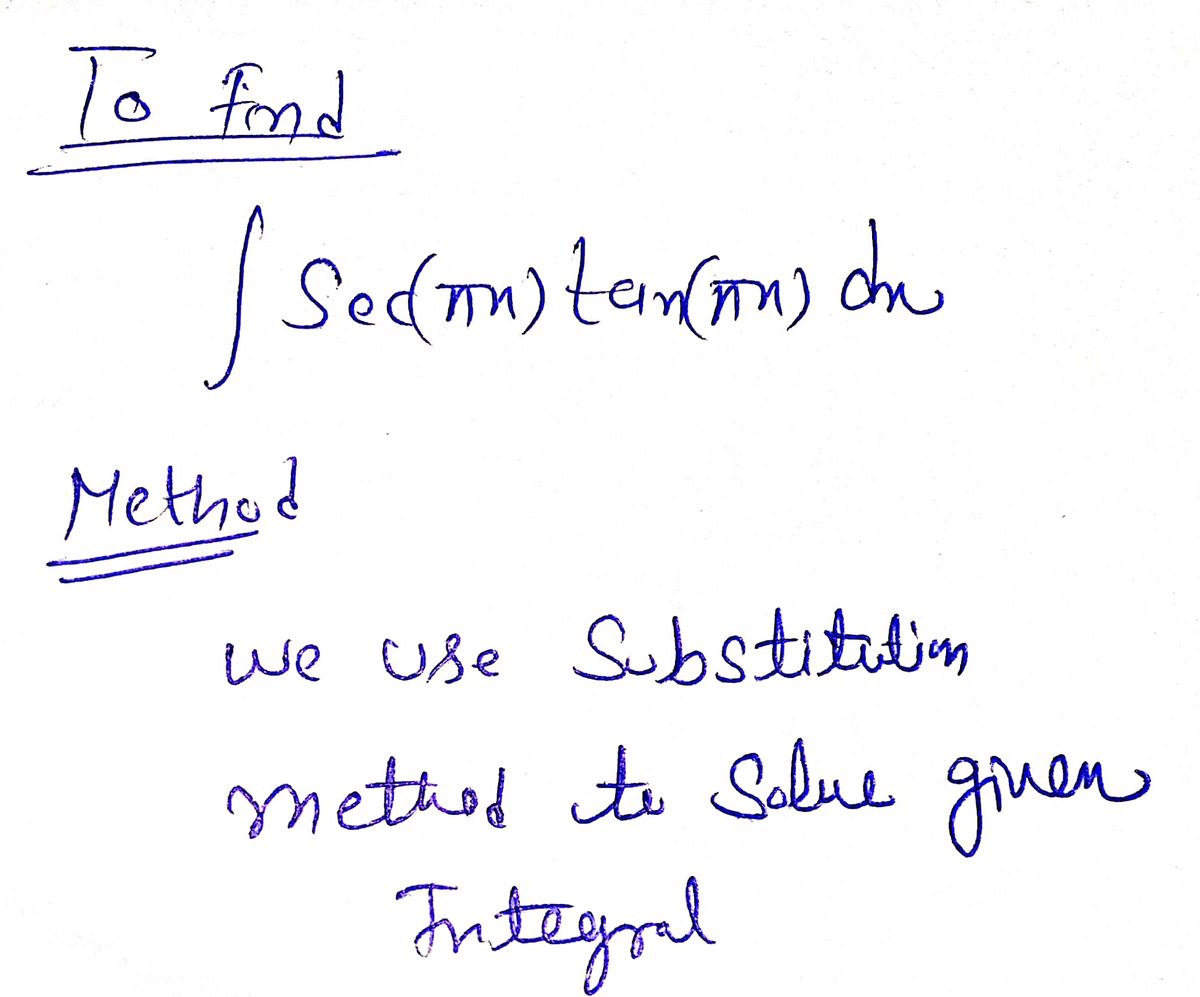 To find
∫ Sec(πx) tan(πx) dx
Method
we use Substitution
method to Solve given
Integral